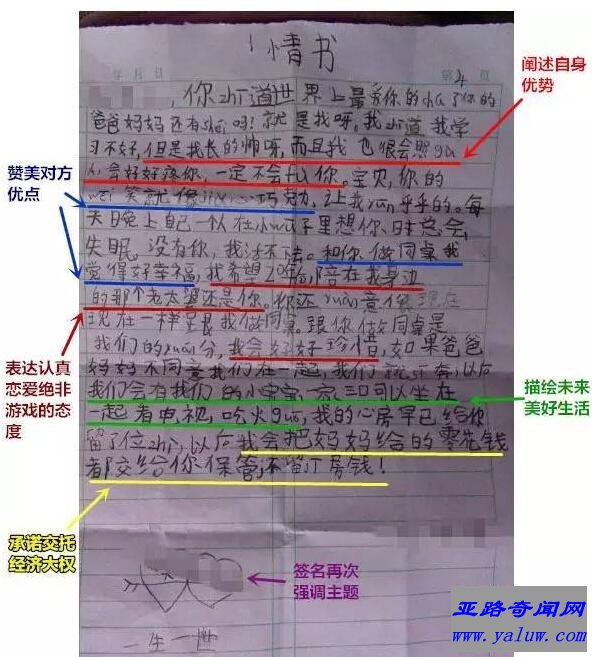 情书
年 月 日
第 4 页
，你zhi道世界上最爱你的chu了你的
阐述自身
优势
爸爸妈妈还有shei吗？就是我呀。我zhi道我学
习不好，但是我长的帅呀，而且我也很会照gu
人，会好好疼你，一定不会fu你。宝贝，你的
赞美对方
优点
wei笑就像巧克力，让我ruan乎乎的。每
天晚上自己一个人在小wu子里想你、时总会
失眠。没有你，我活不下去。和你做同桌我
觉得好幸福，我希望20年后，陪在我身边
的那个老太婆还是你。你还yuan意像现在
现在一样跟我做同桌。跟你做同桌是
我们的yuan分，我会好好珍惜，如果爸爸
表达认真
恋爱绝非
游戏的态
度
妈妈不同意我们在一起，我们就，以后
我们会有我们的小宝宝，一家三口可以坐在
描绘未来
美好生活
一起看电视，吃火guo，我的心房早已给你
留了位zhi，以后我会把妈妈给的零花钱
都交给你保管，不留丁房钱！
承诺交托
经济大权
签名再次
强调主题
一生一世
亚路奇闻网
www.yaluw.com